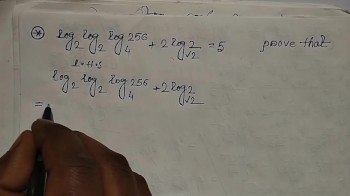 * log₂ log₂ log₄ 256 + 2 log√2 2 = 5 prove that
L.H.S
log₂ log₂ log₄ 256 + 2 log√2 2
=